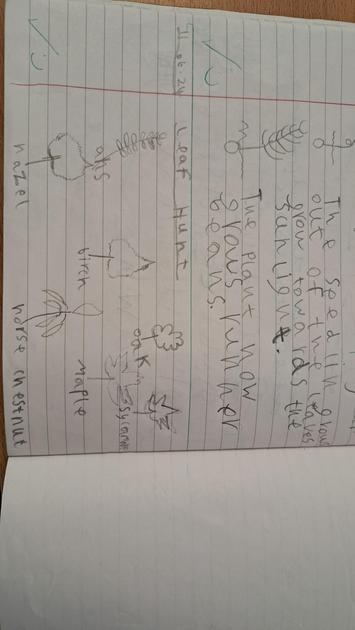 The seedling grows
out of the leaves
grow towards the
sunlight.
The plant now
grows runner
beans.
11.06.24
Leaf Hunt
ans
oak
birch
sycamore
hazel
maple
horse chestnut